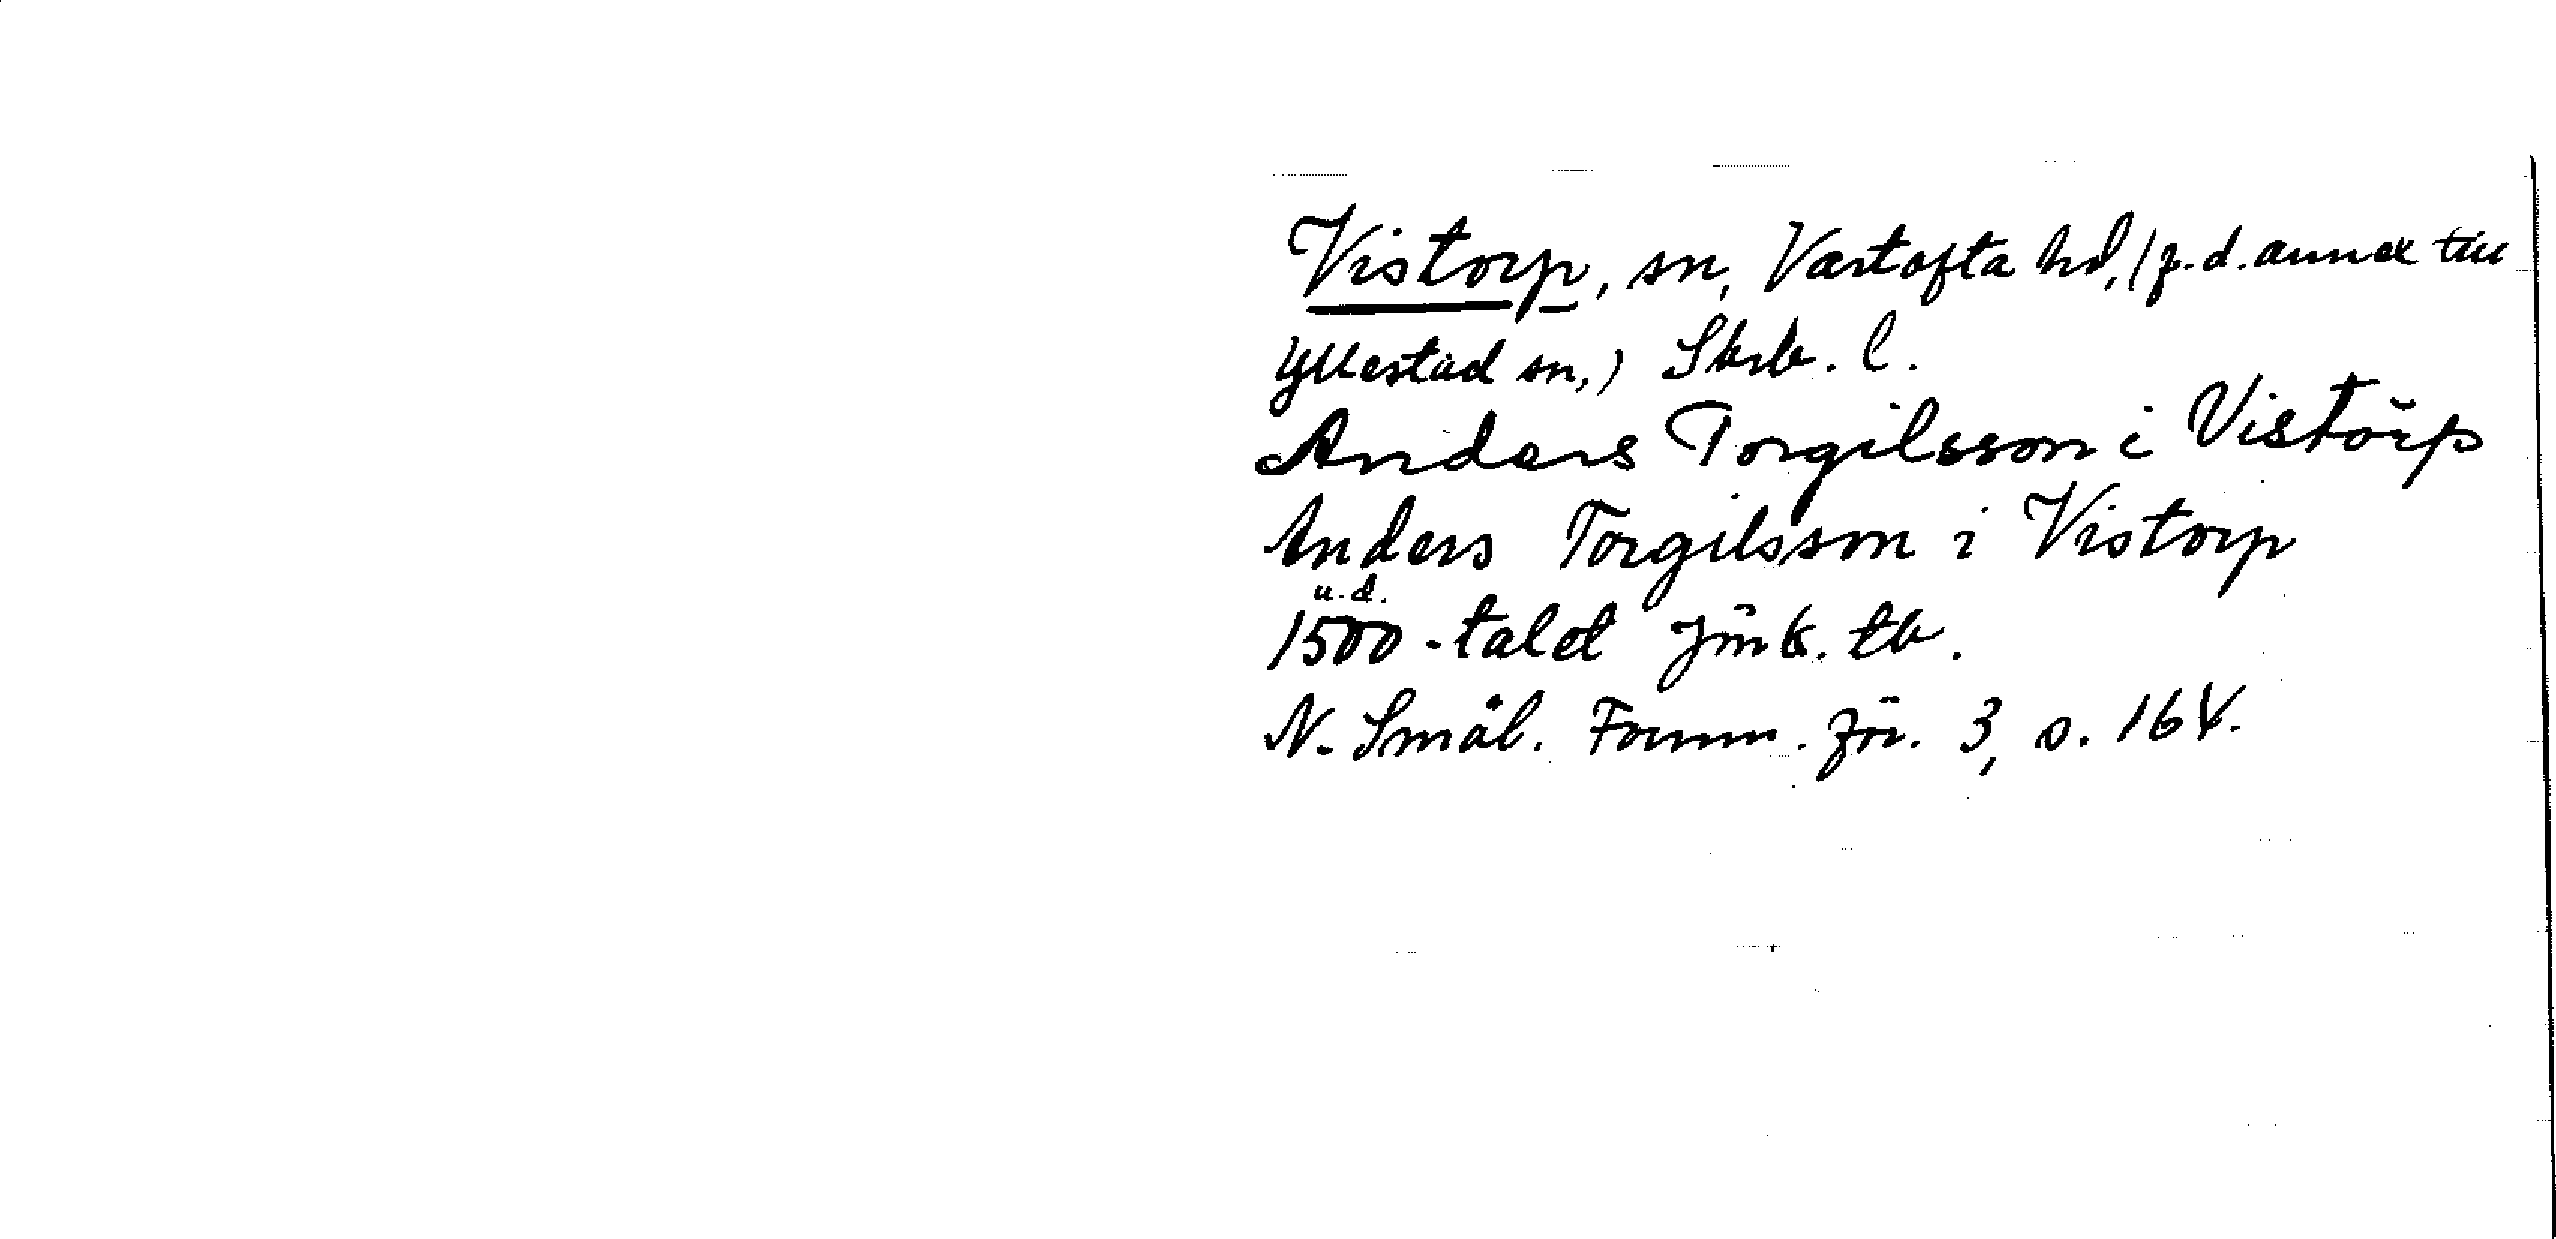 Vistorp, sn, Vartofta hd, (f.d. annex till
Yllestad sn,) Skrb. l.
Anders Torgilsson i Vistörp
Anders Torgilsson i Vistorp
u.d.
1500-talet Jönk. tb.
N. Smål. Fornm. för. 3, s. 164.